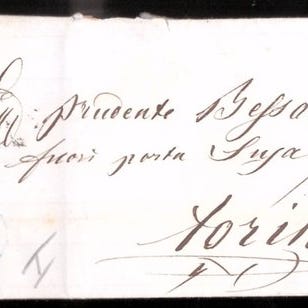 Prudente Bessa
fuori porta Susa
Torin